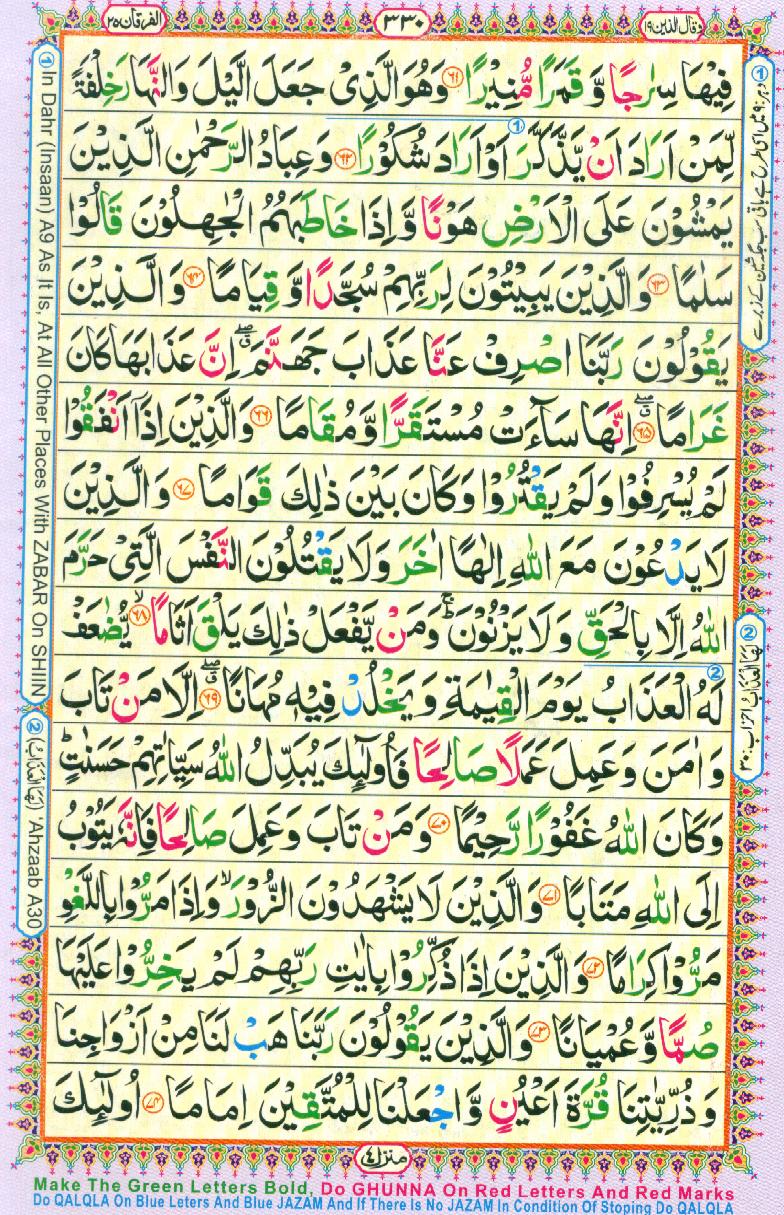 وقال الذين ١٩
٣٣٠
الفرقان ٢٥
فِيْهَا سِرٰجًا وَّ قَمَرًا مُّنِيْرًا ﴿۶۱﴾ وَهُوَ الَّذِیْ جَعَلَ الَّيْلَ وَالنَّهَارَ خِلْفَةً
لِّمَنْ اَرَادَ اَنْ يَّذَّكَّرَ اَوْ اَرَادَ شُكُوْرًا ﴿۶۲﴾ وَعِبَادُ الرَّحْمٰنِ الَّذِيْنَ
يَمْشُوْنَ عَلَى الْاَرْضِ هَوْنًا وَّ اِذَا خَاطَبَهُمُ الْجٰهِلُوْنَ قَالُوْا
سَلٰمًا ﴿۶۳﴾ وَالَّذِيْنَ يَبِيْتُوْنَ لِرَبِّهِمْ سُجَّدًا وَّ قِيَامًا ﴿۶۴﴾ وَالَّذِيْنَ
يَقُوْلُوْنَ رَبَّنَا اصْرِفْ عَنَّا عَذَابَ جَهَنَّمَ ۖۗ اِنَّ عَذَابَهَا كَانَ
غَرَامًا ﴿۶۵﴾ اِنَّهَا سَآءَتْ مُسْتَقَرًّا وَّ مُقَامًا ﴿۶۶﴾ وَالَّذِيْنَ اِذَاۤ اَنْفَقُوْا
لَمْ يُسْرِفُوْا وَلَمْ يَقْتُرُوْا وَكَانَ بَيْنَ ذٰلِكَ قَوَامًا ﴿۶۷﴾ وَالَّذِيْنَ
لَا يَدْعُوْنَ مَعَ اللّٰهِ اِلٰهًا اٰخَرَ وَلَا يَقْتُلُوْنَ النَّفْسَ الَّتِیْ حَرَّمَ
اللّٰهُ اِلَّا بِالْحَقِّ وَلَا يَزْنُوْنَ ۚ وَمَنْ يَّفْعَلْ ذٰلِكَ يَلْقَ اَثَامًا ﴿۶۸﴾ يُّضٰعَفْ
لَهُ الْعَذَابُ يَوْمَ الْقِيٰمَةِ وَيَخْلُدْ فِيْهٖ مُهَانًا ﴿۶۹﴾ اِلَّا مَنْ تَابَ
وَاٰمَنَ وَعَمِلَ عَمَلًا صَالِحًا فَاُولٰٓئِكَ يُبَدِّلُ اللّٰهُ سَيِّاٰتِهِمْ حَسَنٰتٍ ؕ
وَكَانَ اللّٰهُ غَفُوْرًا رَّحِيْمًا ﴿۷۰﴾ وَمَنْ تَابَ وَعَمِلَ صَالِحًا فَاِنَّهٗ يَتُوْبُ
اِلَى اللّٰهِ مَتَابًا ﴿۷۱﴾ وَالَّذِيْنَ لَا يَشْهَدُوْنَ الزُّوْرَ ۙ وَاِذَا مَرُّوْا بِاللَّغْوِ
مَرُّوْا كِرَامًا ﴿۷۲﴾ وَالَّذِيْنَ اِذَا ذُكِّرُوْا بِاٰيٰتِ رَبِّهِمْ لَمْ يَخِرُّوْا عَلَيْهَا
صُمًّا وَّ عُمْيَانًا ﴿۷۳﴾ وَالَّذِيْنَ يَقُوْلُوْنَ رَبَّنَا هَبْ لَنَا مِنْ اَزْوَاجِنَا
وَ ذُرِّيّٰتِنَا قُرَّةَ اَعْيُنٍ وَّ اجْعَلْنَا لِلْمُتَّقِيْنَ اِمَامًا ﴿۷۴﴾ اُولٰٓئِكَ
منزل ٤
① In Dahr (Insaan) A9 As It Is, At All Other Places With ZABAR On SHIIN
② 'Ahzaab A30
Make The Green Letters Bold, Do GHUNNA On Red Letters And Red Marks
Do QALQLA On Blue Leters And Blue JAZAM And If There Is No JAZAM In Condition Of Stoping Do QALQLA